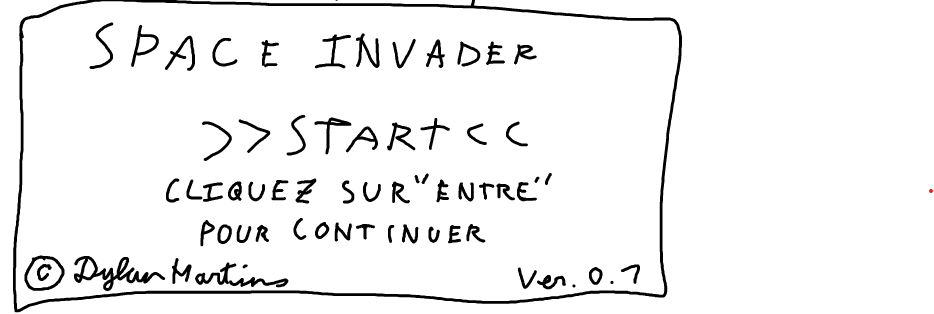 SPACE INVADER
>>START<<
CLIQUEZ SUR "ENTRE"
POUR CONTINUER
© Dylan Martins
Ver. 0.7